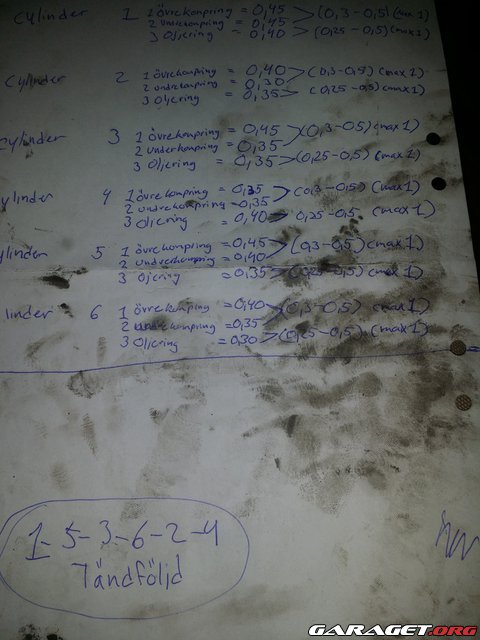 Cylinder 1 1 övrekompring = 0,45 > (0,3-0,5) (max 1)
2 undrekompring = 0,45
3 Oljering = 0,40 > (0,25-0,5) (max 1)
Cylinder 2 1 övrekompring = 0,40 > (0,3-0,5) (max 1)
2 undrekompring = 0,30
3 Oljering = 0,35 > (0,25-0,5) (max 1)
Cylinder 3 1 övrekompring = 0,45 > (0,3-0,5) (max 1)
2 underkompring = 0,35
3 Oljering = 0,35 > (0,25-0,5) (max 1)
ylinder 4 1 övrekompring = 0,35 > (0,3-0,5) (max 1)
2 undrekompring = 0,35
3 Oljering = 0,40 > 0,25-0,5 (max 1)
ylinder 5 1 övrekompring = 0,45 > (0,3-0,5) (max 1)
2 undrekompring = 0,40
3 Oljering = 0,35 > (0,25-0,5) (max 1)
linder 6 1 övrekompring = 0,40 > (0,3-0,5) (max 1)
2 undrekompring = 0,35
3 Oljering = 0,30 > (0,25-0,5) (max 1)
1-5-3-6-2-4
Tändföljd
GARAGET.ORG